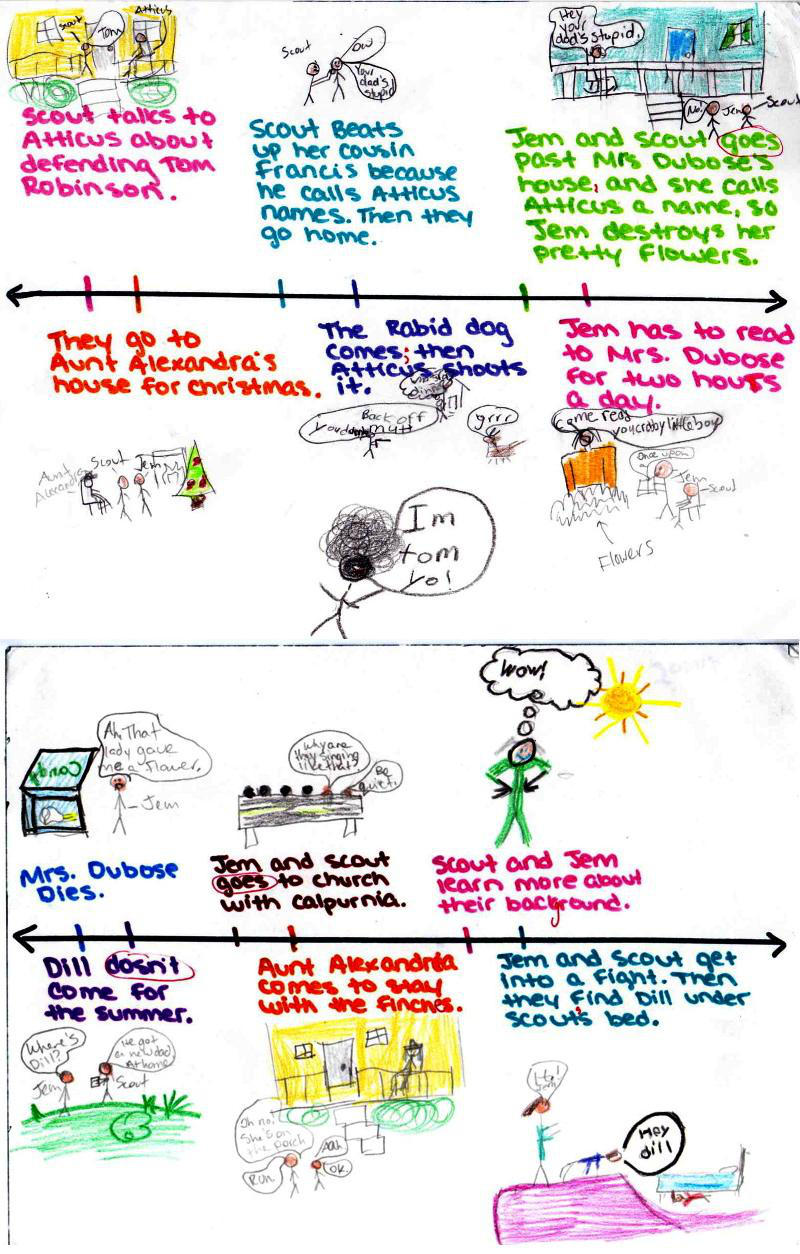 Scout
Tom
Atticus
Scout talks to
Atticus about
defending Tom
Robinson.
Scout
Ow
Your
dad's
stupid
Scout Beats
up her cousin
Francis because
he calls Atticus
names. Then they
go home.
Hey
your
dad's stupid.
No!
Jem
Scout
Jem and Scout goes
past Mrs Dubose's
house, and she calls
Atticus a name, so
Jem destroys her
pretty flowers.
They go to
Aunt Alexandra's
house for christmas.
Aunt
Alexandra
Scout
Jem
The Rabid dog
comes; then
Atticus shoots
it.
Back off
mutt
grrr
Jem has to read
to Mrs. Dubose
for two hours
a day.
Come read
you craby little boy
Once upon
a
Jem
Scout
Flowers
Im
tom
yo!
Wow!
Candy
Ah. That
lady gave
me a flower.
Jem
Why are
they singing
like that?
Be
quiet.
Mrs. Dubose
Dies.
Jem and Scout
goes to church
with calpurnia.
Scout and Jem
learn more about
their background.
Dill dosn't
come for
the summer.
Where's
Dill?
Jem
I've got
a new dad
At home
Scout
Aunt Alexandra
comes to stay
with the finches.
Oh no!
She's on
the porch
Run.
Aah
OK.
Jem and Scout get
into a fight. Then
they find Dill under
Scout's bed.
Hey
dill